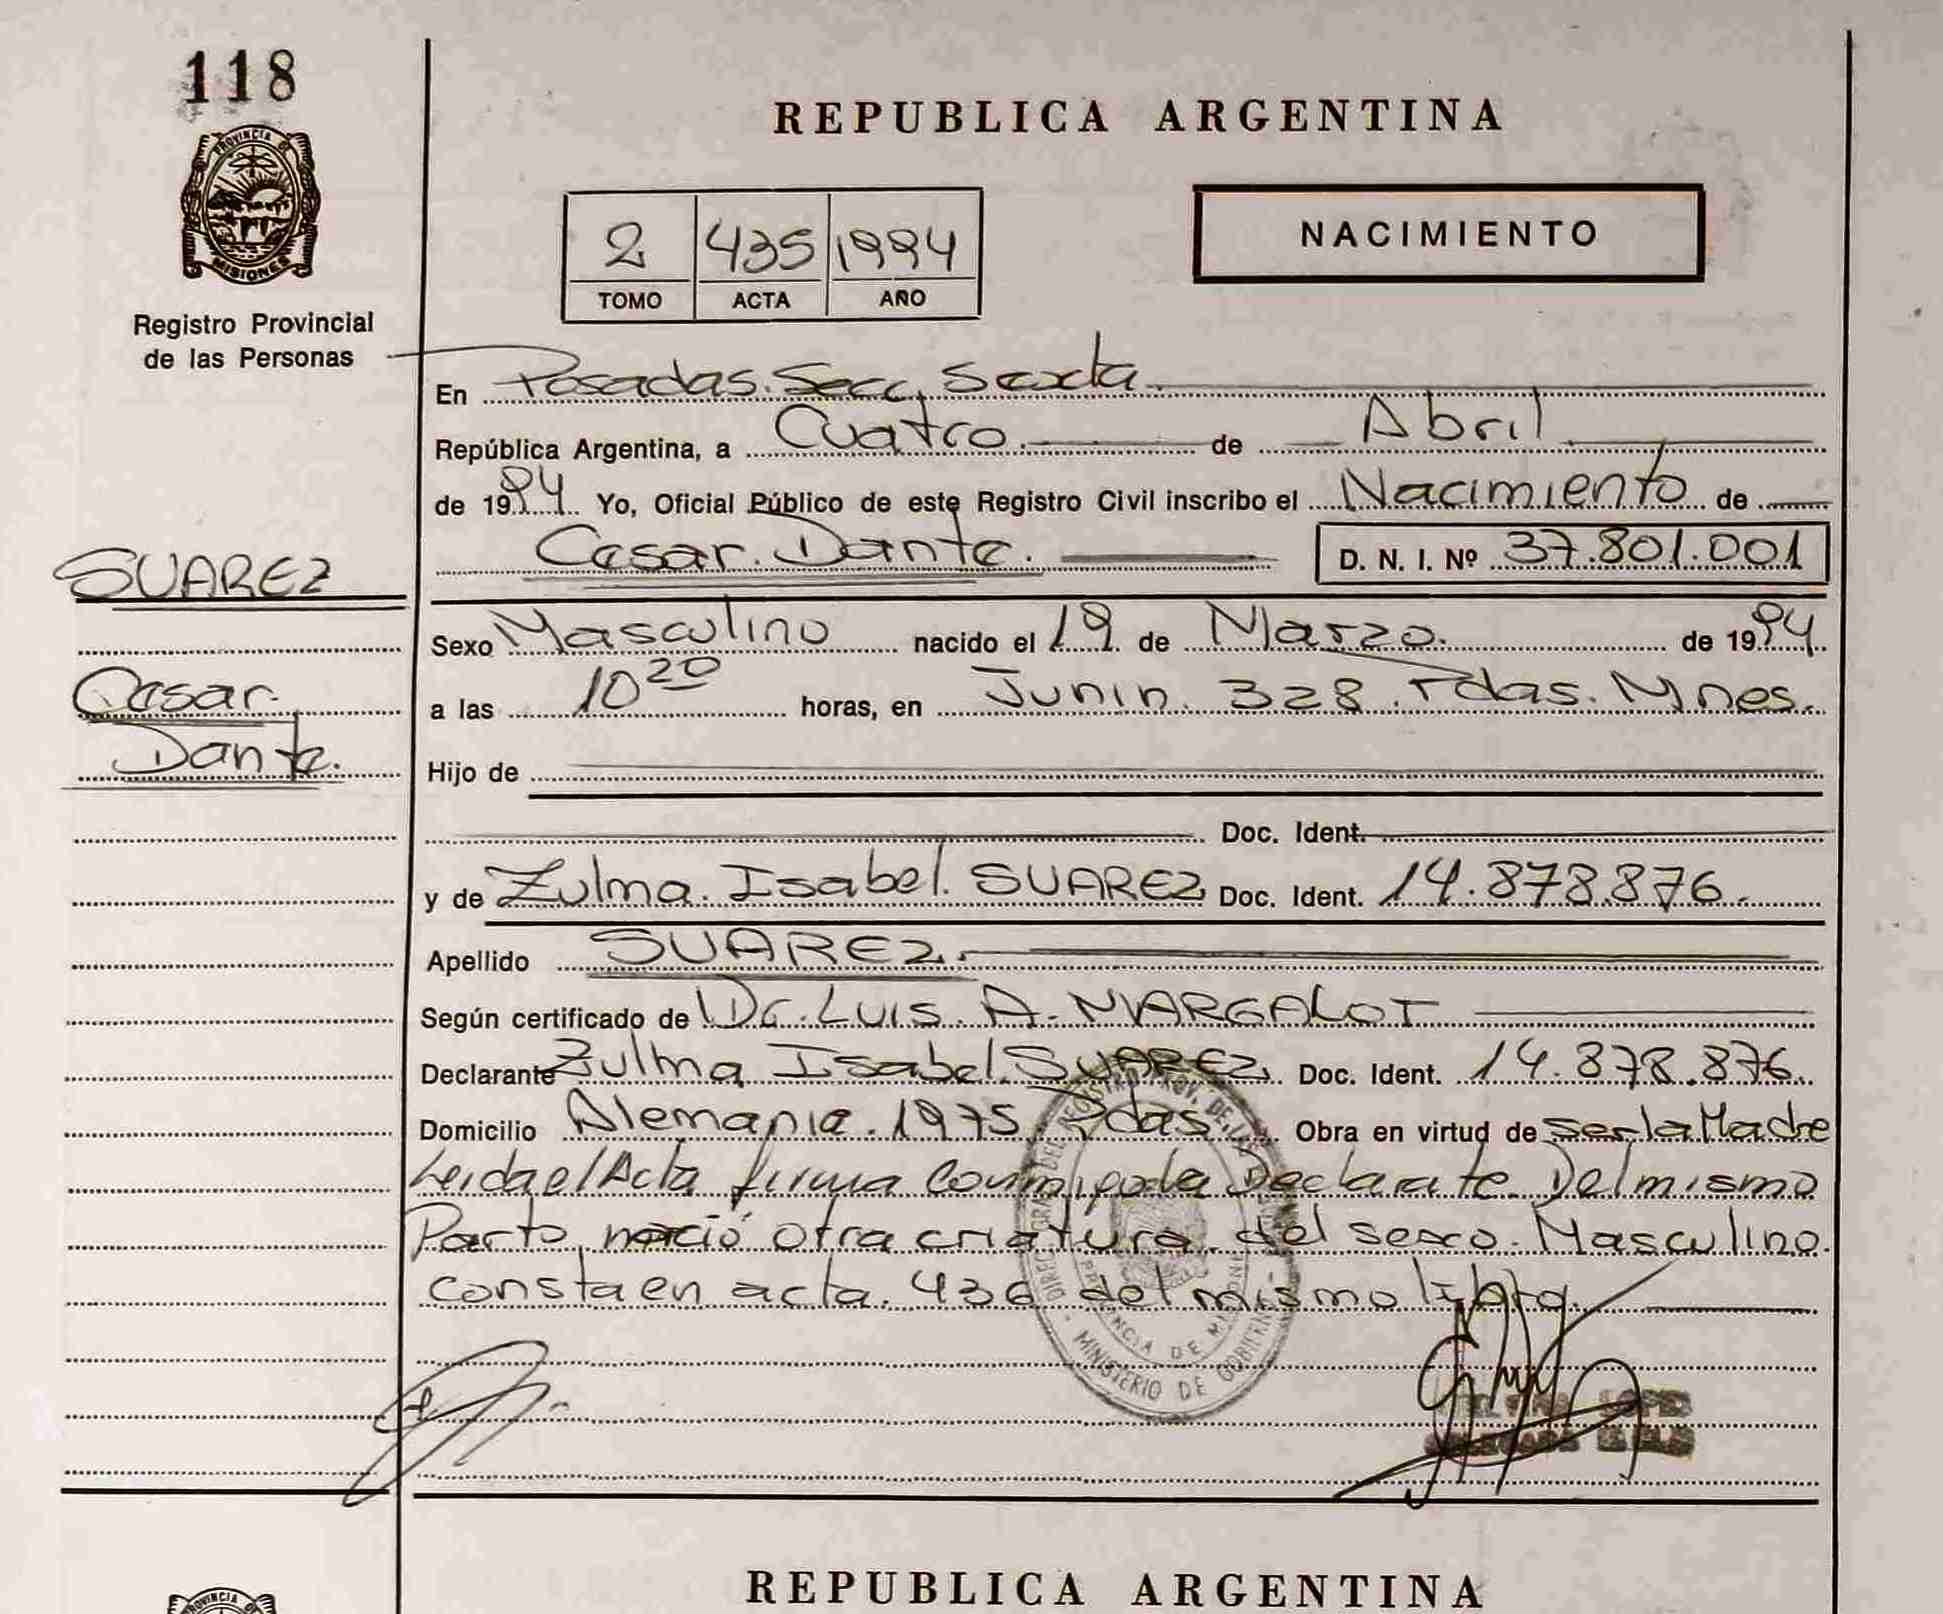 118
PROVINCIA DE
MISIONES
Registro Provincial
de las Personas
REPUBLICA ARGENTINA
2 435 1994
TOMO ACTA AÑO
NACIMIENTO
En Posadas. Secc. Sexta.
República Argentina, a Cuatro. de Abril.
de 1994 Yo, Oficial Público de este Registro Civil inscribo el Nacimiento de
Cesar. Dante. D. N. I. Nº 37.801.001
SUAREZ
Cesar.
Dante.
Sexo Masculino nacido el 19 de Marzo. de 1994.
a las 10 20 horas, en Junin. 328. Pdas. Mnes.
Hijo de
Doc. Ident.
y de Zulma. Isabel. SUAREZ Doc. Ident. 14.878.876.
Apellido SUAREZ.
Según certificado de Dr. LUIS. A. MARGALOT
Declarante Zulma Isabel. SUAREZ. Doc. Ident. 14.878.876.
Domicilio Alemania. 1975. Pdas. Obra en virtud de ser la Madre
Leida el Acta firma conmigo la Declarate. Del mismo
Parto, nació otra criatura. del sexo. Masculino.
consta en acta. 436 del mismo libro.
MINISTERIO DE GOBIERN
PROVINCIA DE MISIONES
LOPEZ
REPUBLICA ARGENTINA
PROVINCIA DE